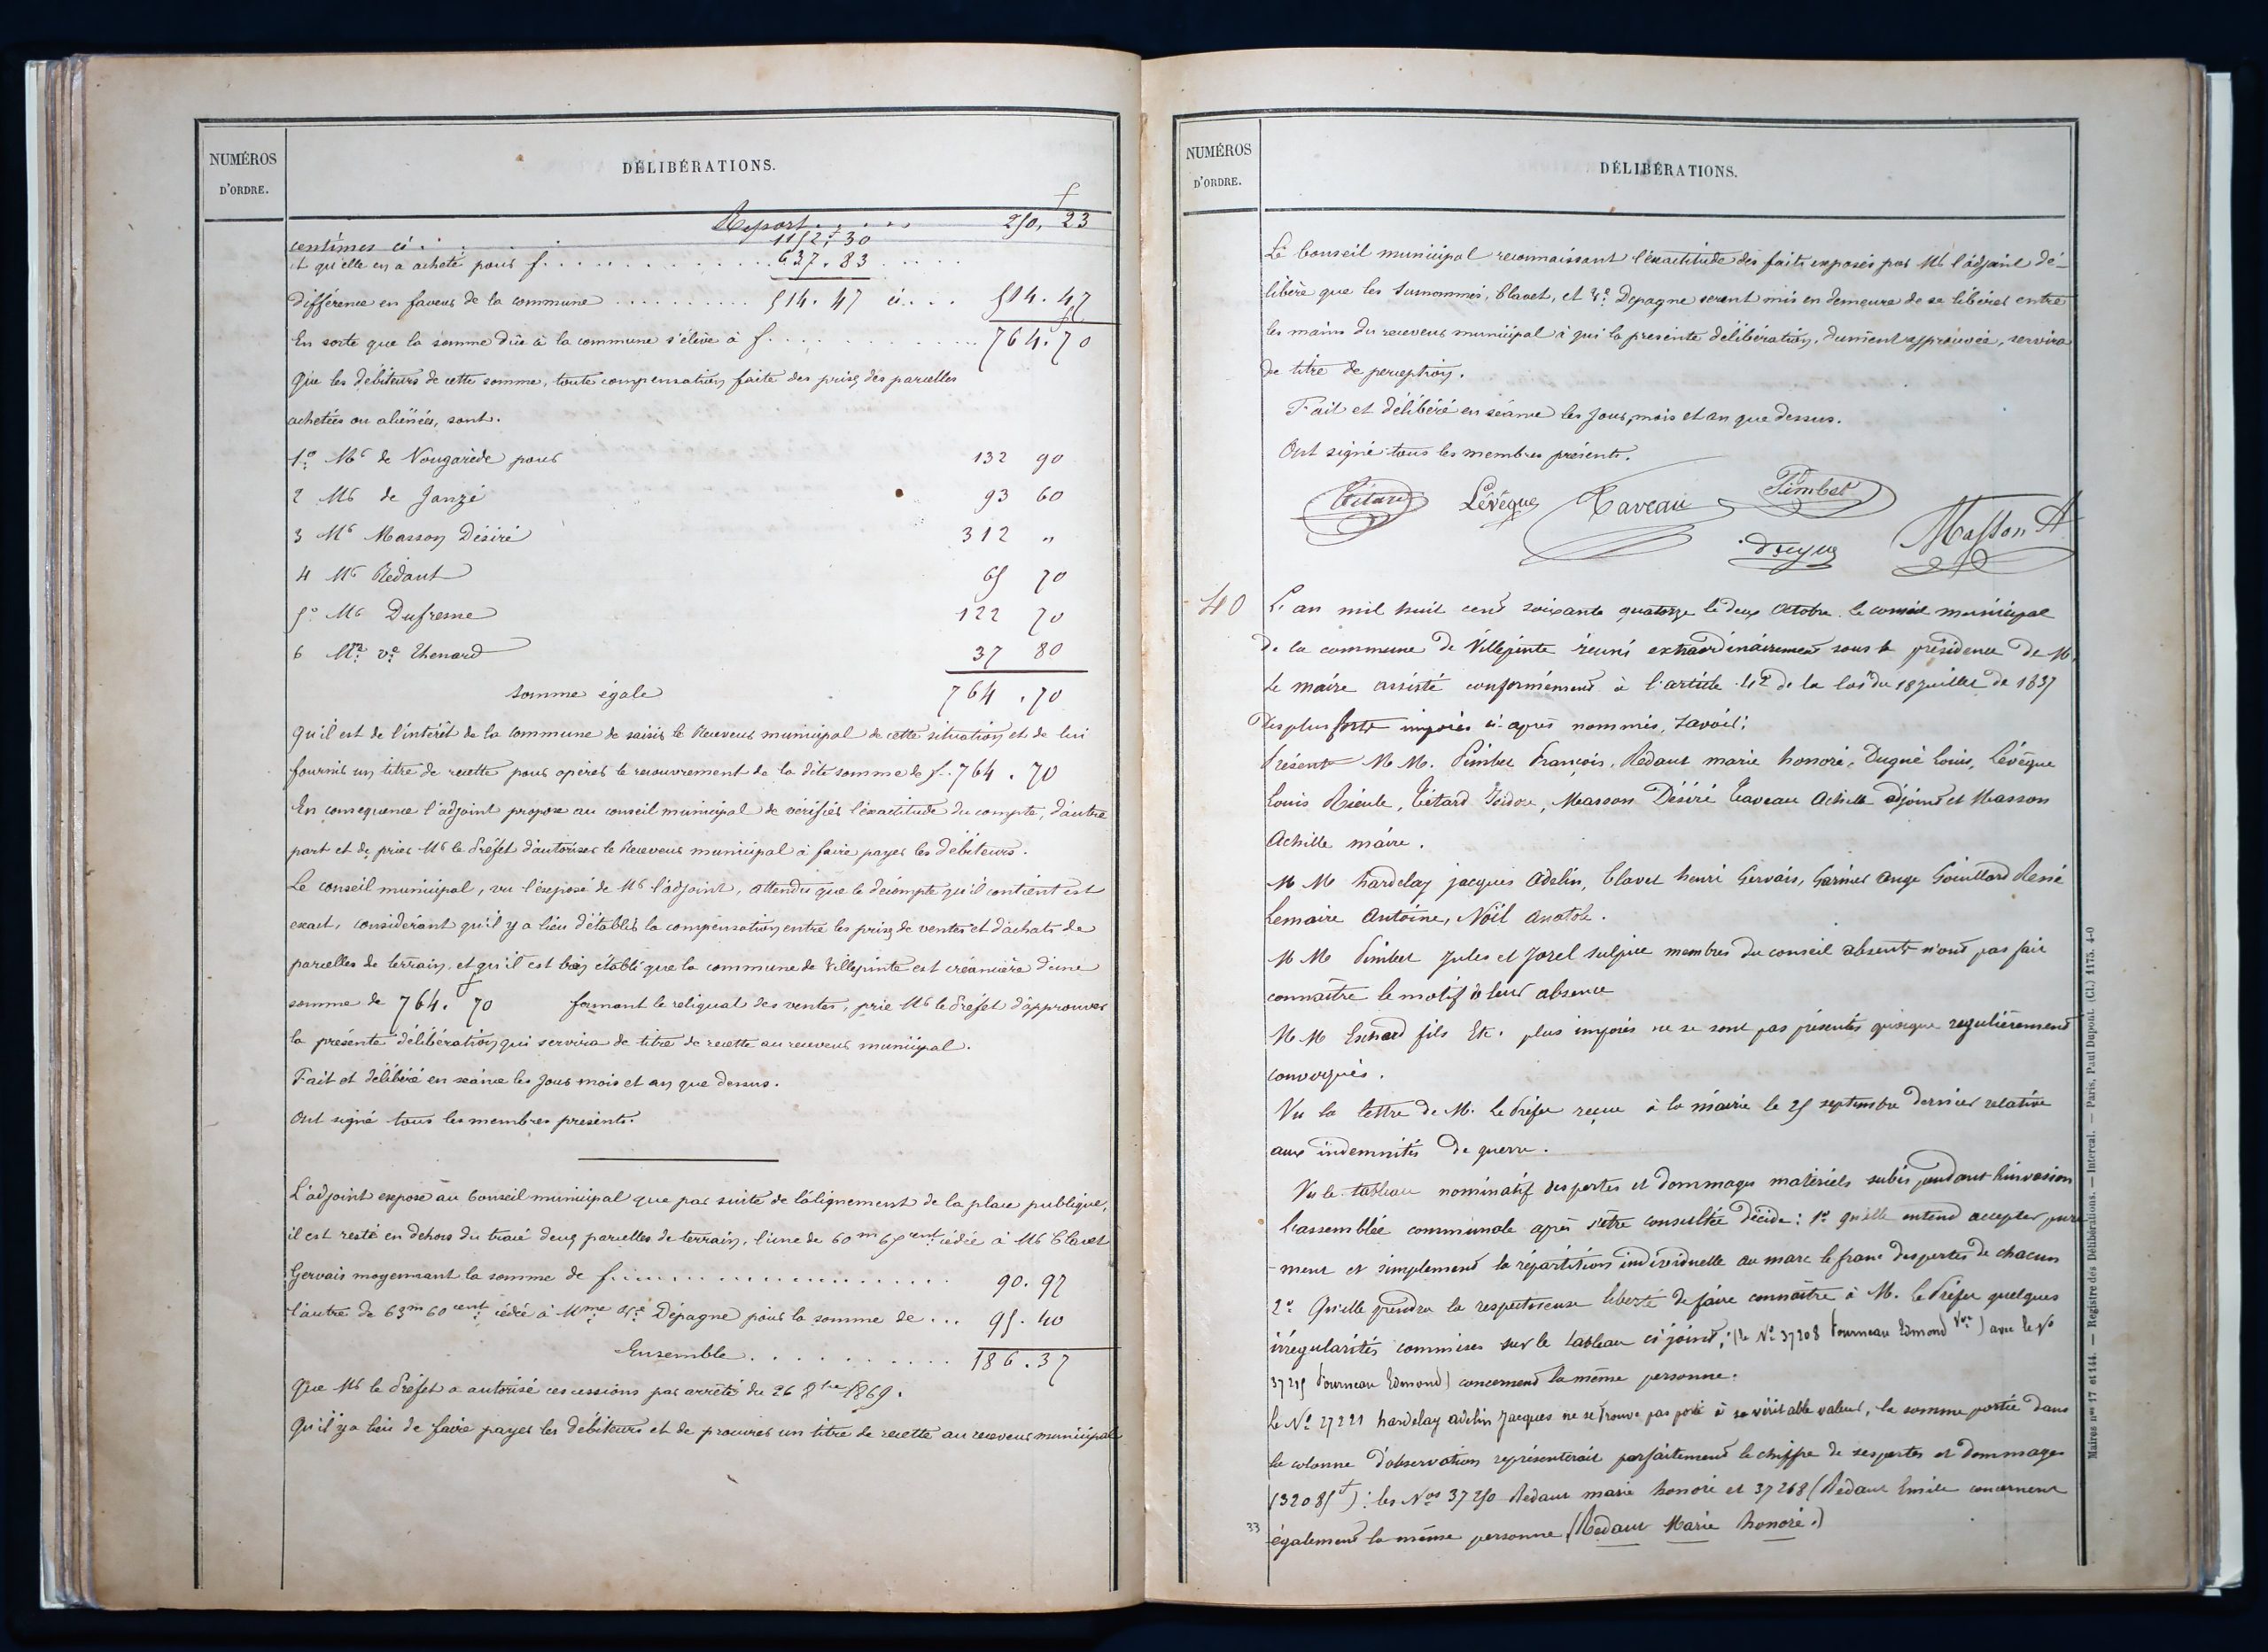 NUMÉROS
D'ORDRE.
DÉLIBÉRATIONS.
f
Report . . . . . 250, 23
centimes ci . . . . 1152f 30
et qu'elle en a acheté pour f . . . . . . 637. 83
différence en faveur de la commune . . . . . . 514. 47 ci . . . 514. 47
En sorte que la somme dûe à la commune s'élève à f . . . . . . 764. 70
Que les débiteurs de cette somme, toute compensation faite des prix des parcelles
achetées ou aliénées, sont.
1° Mr de Nougarède pour 132 90
2 Mr de Janzé 93 60
3 Mr Masson Désiré 312 "
4 Mr Redaut 65 70
5° Mr Dufresne 122 70
6 Me ve Thenard 37 80
somme égale 764. 70
Qu'il est de l'intérêt de la commune de saisir le Receveur municipal de cette situation et de lui
fournir un titre de recette pour opérer le recouvrement de la dite somme de f. 764. 70
En consequence l'adjoint propose au conseil municipal de vérifier l'exactitude du compte, d'autre
part et de prier Mr le Préfet d'autoriser le Receveur municipal à faire payer les débiteurs.
Le conseil municipal, vu l'exposé de Mr l'adjoint, attendu que le décompte qu'il contient est
exact, considérant qu'il y a lieu d'établir la compensation entre les prix de ventes et d'achats de
parcelles de terrain, et qu'il est bien établi que la commune de Villepinte est créancière d'une
somme de 764. f 70 formant le reliquat des ventes, prie Mr le Préfet d'approuver
la présente délibération qui servira de titre de recette au receveur municipal.
Fait et délibéré en séance les jour mois et an que dessus.
Ont signé tous les membres présents.
L'adjoint expose au Conseil municipal que par suite de l'alignement de la place publique,
il est resté en dehors du tracé deux parcelles de terrain, l'une de 60m 65cent cédée à Mr Clavet
Gervais moyennant la somme de f . . . . . . 90. 97
l'autre de 63m 60cent cédée à Mme Ve Dépagne pour la somme de . . . 95. 40
Ensemble . . . . . . 186. 37
Que Mr le Préfet a autorisé ces cessions par arrêté du 26 8bre 1869.
Qu'il y a lieu de faire payer les débiteurs et de procurer un titre de recette au receveur municipal
NUMÉROS
D'ORDRE.
DÉLIBÉRATIONS.
Le Conseil municipal reconnaissant l'exactitude des faits exposés par Mr l'adjoint dé-
libère que les susnommés, Clavet, et Ve Depagne seront mis en demeure de se libérer entre
les mains du receveur municipal à qui la présente délibération, dument approuvée, servira
de titre de perception.
Fait et délibéré en séance les jour, mois et an que dessus.
Ont signé tous les membres présents.
Tétard Lévêque Taveau Pimbet
Masson A
40 L'an mil huit cent soixante quatorze le deux Octobre le conseil municipal
de la commune de Villepinte réuni extraordinairement sous la présidence de M.
le maire assisté conformément à l'article 42 de la loi du 18 juillet de 1837
des plus forts imposés ci-après nommés, savoir:
Présents M M. Pimbet François, Redaut marie honoré, Dugué Louis, Lévêque
Louis Rieule, Tétard Isidore, Masson Désiré Taveau Achille adjoint et Masson
Achille maire.
M M hardelay jacques Adelin, Clavet henri Gervais, Garnier Ange Gouillard René
Lemaire Antoine, Noël Anatole.
M M Pimbet Jules et Jorel sulpice membres du conseil absents n'ont pas fait
connaître le motif de leur absence
M M fils Etc. plus imposés ne se sont pas présentés quoique regulièrement
convoqués.
Vu la lettre de M. le Préfet reçue à la mairie le 25 septembre dernier relative
aux indemnités de guerre.
Vu le tableau nominatif des pertes et dommages matériels subis pendant l'invasion
l'assemblée communale après s'être consultée décide: 1° qu'elle entend accepter pure
ment et simplement la répartition individuelle au marc le franc des pertes de chacun
2° Qu'elle prendra la respectueuse liberté de faire connaître à M. le Préfet quelques
irrégularités commises sur le tableau ci joint; (le No 37208 Fourneau Edmond Vor) avec le No
37215 Fourneau Edmond) concernent la même personne.
Le No 27221 hardelay adelin Jacques ne se trouve pas porté à sa véritable valeur, la somme portée dans
la colonne d'observation représenterait parfaitement le chiffre de ses pertes et dommages
(32085f): les Nos 37250 Redaut marie honoré et 37268 (Redaut Emile concernent
également la même personne (Redaut Marie honoré.)
33
Maires nos 17 et 144. — Registre des Délibérations. — Intercal. — Paris, Paul Dupont. (Cl.) 1175. 4-0